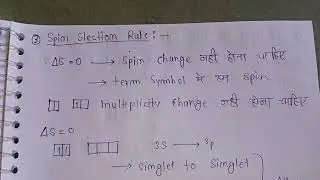 ③ Spin Slection Rule:-
ΔS=0 → Spin change नही होना चाहिए
→ term Symbol में Spin
multiplicity fhange नही होना चाहिए
ΔS=0
3S → ³p
→ Singlet to Singlet